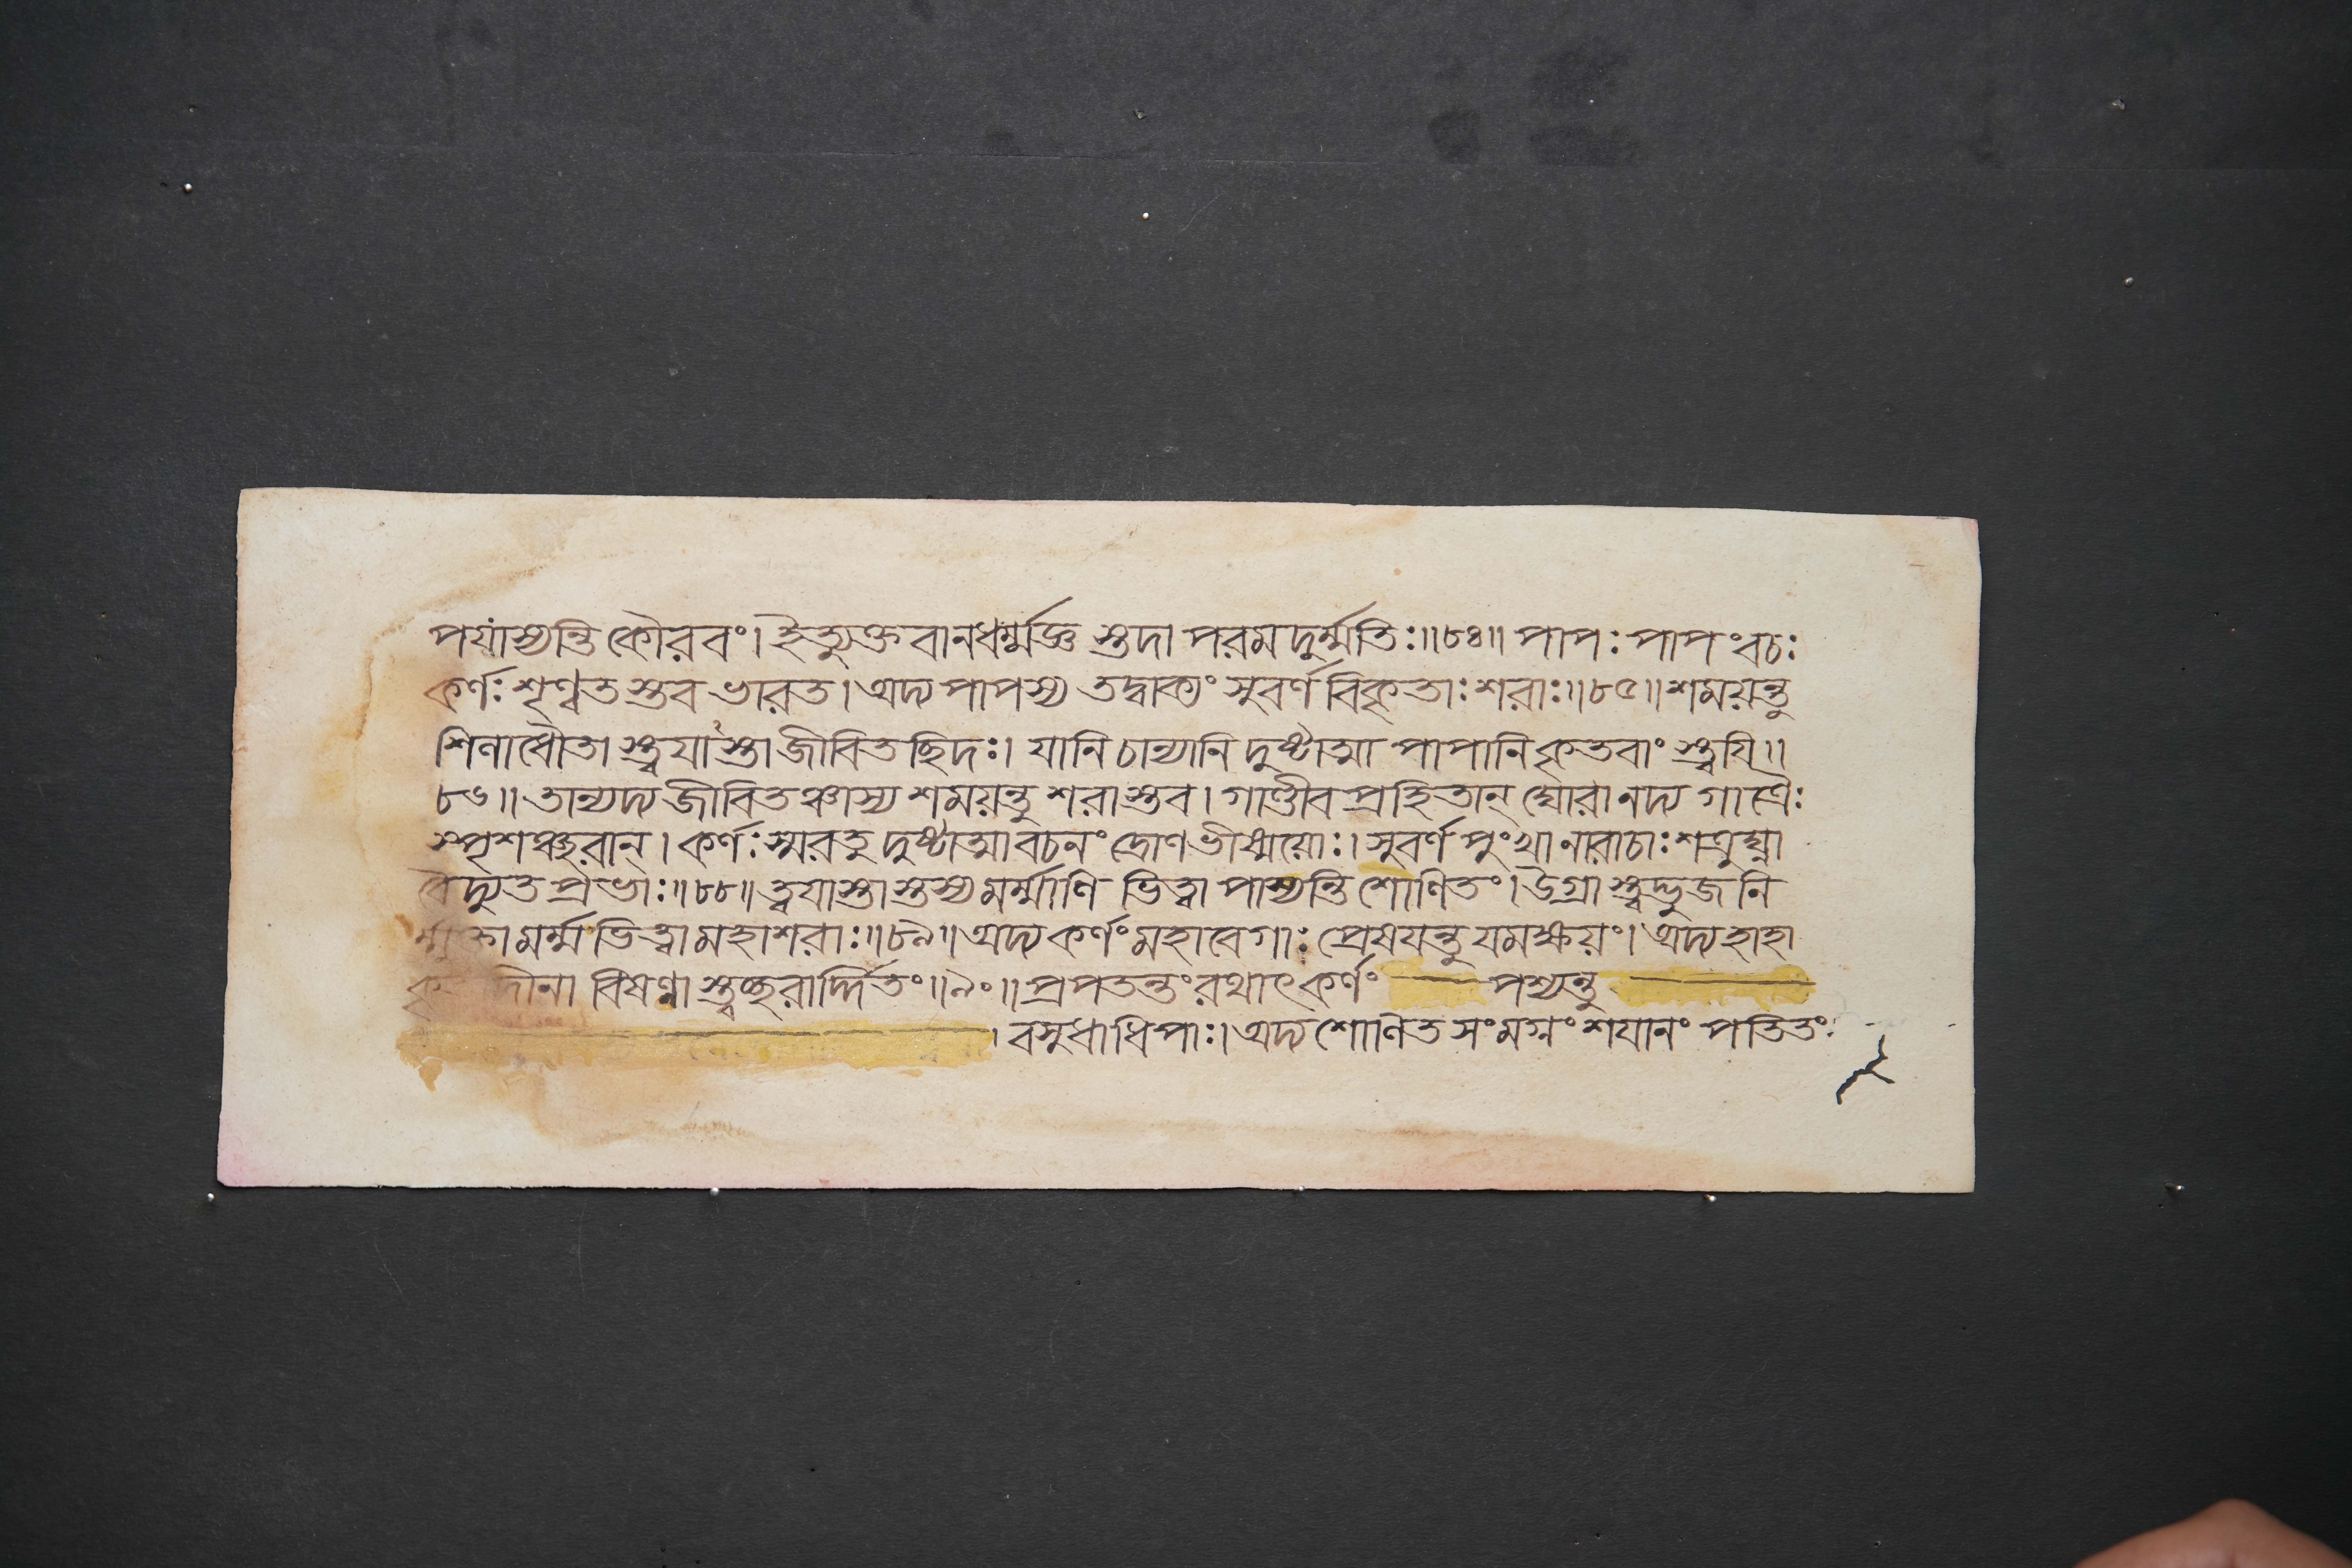 পর্যাস্যন্তি কৌরবং। ইত্যুক্তবানধর্ম্মজ্ঞ স্তদা পরমদুর্ম্মতিঃ॥৮৪॥ পাপঃ পাপং বচঃ
কর্ণঃ শৃণ্বত স্তব ভারত। অদ্য পাপস্য তদ্বাক্যং সুবর্ণ বিকৃতাঃ শরাঃ॥৮৫॥ শময়ন্তু
শিলাধৌতা স্ত্বয়াস্তা জীবিতছিদঃ। যানি চান্যানি দুষ্টাত্মা পাপানি কৃতবাং স্ত্বয়ি॥
৮৬॥ তান্যদ্য জীবিতঞ্চাস্য শময়ন্তু শরাস্তব। গাণ্ডীব প্রহিতান্ ঘোরানদ্য গাত্রৈঃ
স্পৃশঞ্ছরান্। কর্ণঃ স্মরতু দুষ্টাত্মা বচনং দ্রোণভীষ্ময়োঃ। সুবর্ণ পুংখা নারাচাঃ শত্রুঘ্না
বৈদ্যুত প্রভাঃ॥৮৮॥ ত্বয়াস্তাস্তস্য মর্ম্মাণি ভিত্বা পাস্যন্তি শোণিতং। উগ্রা স্ত্বদ্ভুজনি
র্ম্মুক্তা মর্ম্ম ভিত্ত্বা মহাশরাঃ॥৮৯॥ অদ্য কর্ণং মহাবেগাঃ প্রেষয়ন্তু যমক্ষয়ং। অদ্য হাহা
কৃ দীনা বিষণ্ণা স্ত্বচ্ছরার্দ্দিতং॥৯০॥ প্রপতন্তং রথাৎ কর্ণং পশ্যন্তু
। বসুধাধিপাঃ। অদ্য শোণিত সংমগ্নং শয়ানং পতিতং